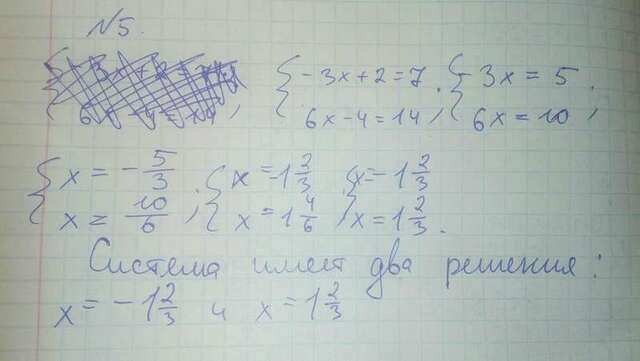 №5.
{ -3x + 2 = 7, 6x - 4 = 14; { -3x = 5, 6x = 10;
{ x = -5/3, x = 10/6; { x = -1 2/3, x = 1 4/6; { x = -1 2/3, x = 1 2/3.
Система имеет два решения:
x = -1 2/3 и x = 1 2/3